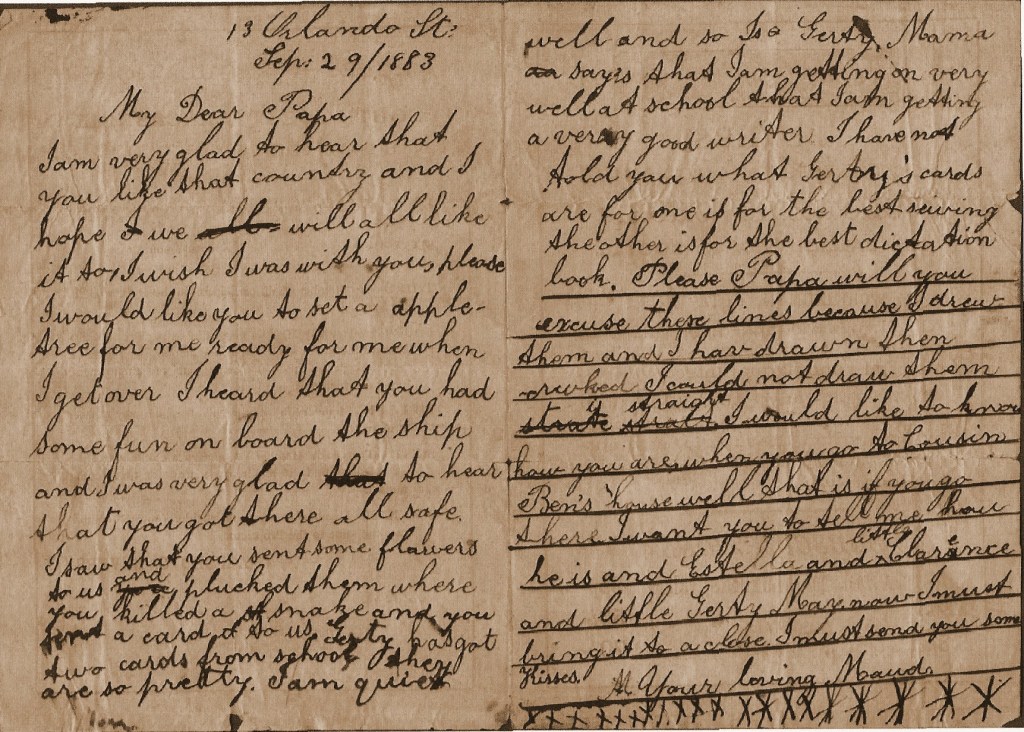 13 Orlando St:
Sep: 29/1883
My Dear Papa
I am very glad to hear that
you like that country and I
hope I we will all like
it to, I wish I was with you, please
I would like you to set a apple-
tree for me ready for me when
I get over I heard that you had
some fun on board the ship
and I was very glad that to hear
that you got there all safe.
I saw that you sent some flowers
to us and plucked them where
you killed a snake and you
send a card to us Gerty has got
two cards from school they
are so pretty. I am quiet
well and so Is Gerty. Mama
says that I am getting on very
well at school that I am getting
a verry good writer. I have not
told you what Gerty's cards
are for, one is for the best sewing
the other is for the best dictation
book. Please Papa will you
excuse these lines because I drew
them and I hav drawn then
crwked I could not draw them
strate straight I would like to know
how you are, when you go to Cousin
Ben's house well that is if you go
there I want you to tell me how
he is and Estella and little Clarence
and little Gerty May, now I must
bring it to a close I must send you some
Kisses. Your loving Maud.
X X X X X X X X X X X X X X X